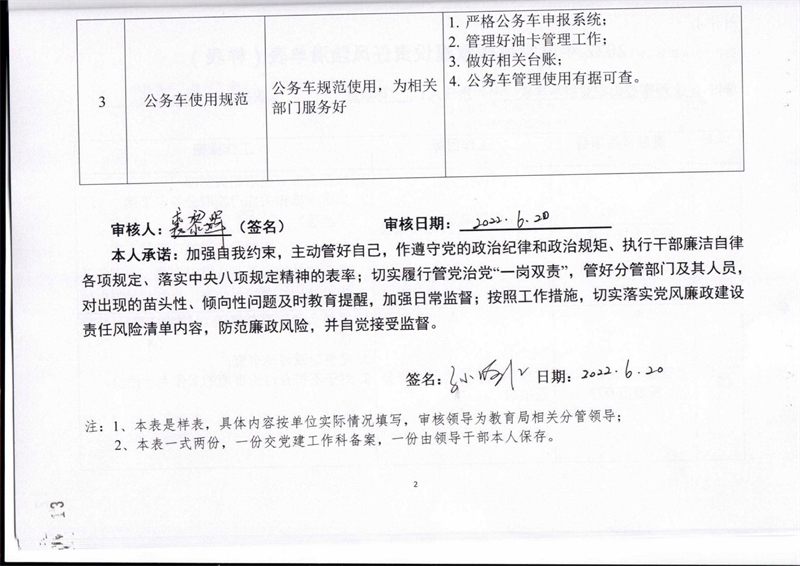 1. 严格公务车申报系统；
2. 管理好油卡管理工作；
3. 做好相关台账；
4. 公务车管理使用有据可查。
3 公务车使用规范 公务车规范使用，为相关
部门服务好
审核人： （签名） 审核日期：2022.6.20
本人承诺：加强自我约束，主动管好自己，作遵守党的政治纪律和政治规矩、执行干部廉洁自律
各项规定、落实中央八项规定精神的表率；切实履行管党治党“一岗双责”，管好分管部门及其人员，
对出现的苗头性、倾向性问题及时教育提醒，加强日常监督；按照工作措施，切实落实党风廉政建设
责任风险清单内容，防范廉政风险，并自觉接受监督。
签名： 日期：2022.6.20
注：1、本表是样表，具体内容按单位实际情况填写，审核领导为教育局相关分管领导；
2、本表一式两份，一份交党建工作科备案，一份由领导干部本人保存。
2
13